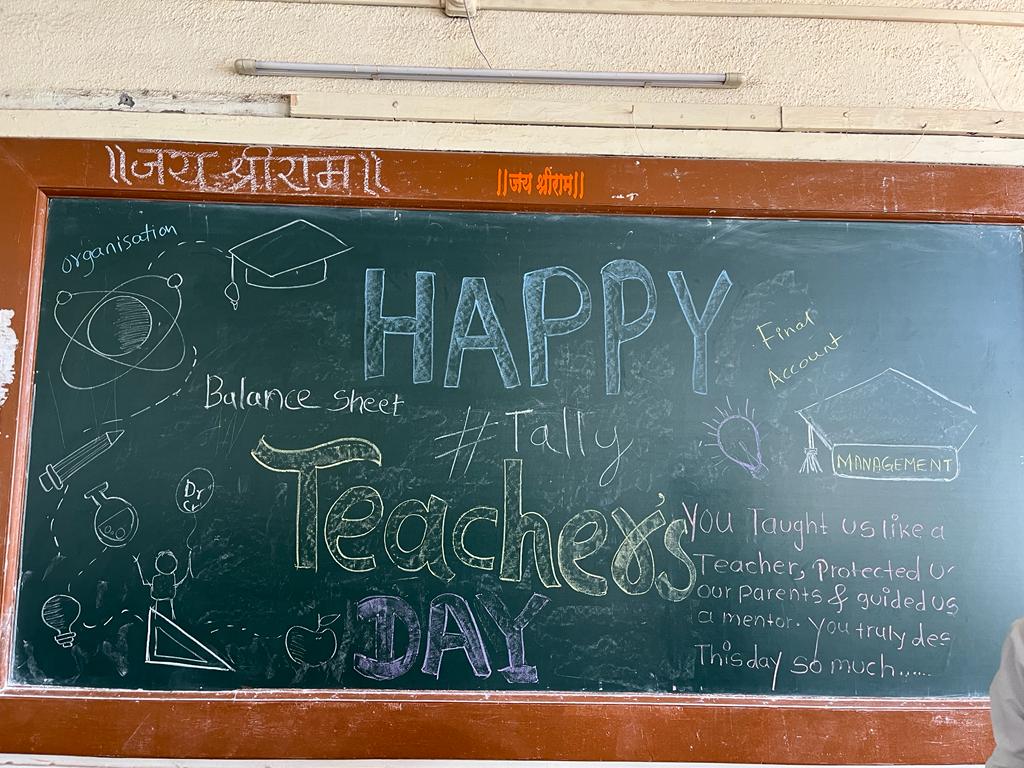 ||जय श्रीराम||
||जय श्रीराम||
Organisation
HAPPY
Final
Account
Balance sheet
#Tally
MANAGEMENT
Teacher's
DAY
Dr
Cr
You Taught us like a
Teacher, Protected
our parents & guided us
a mentor. You truly
This day so much......